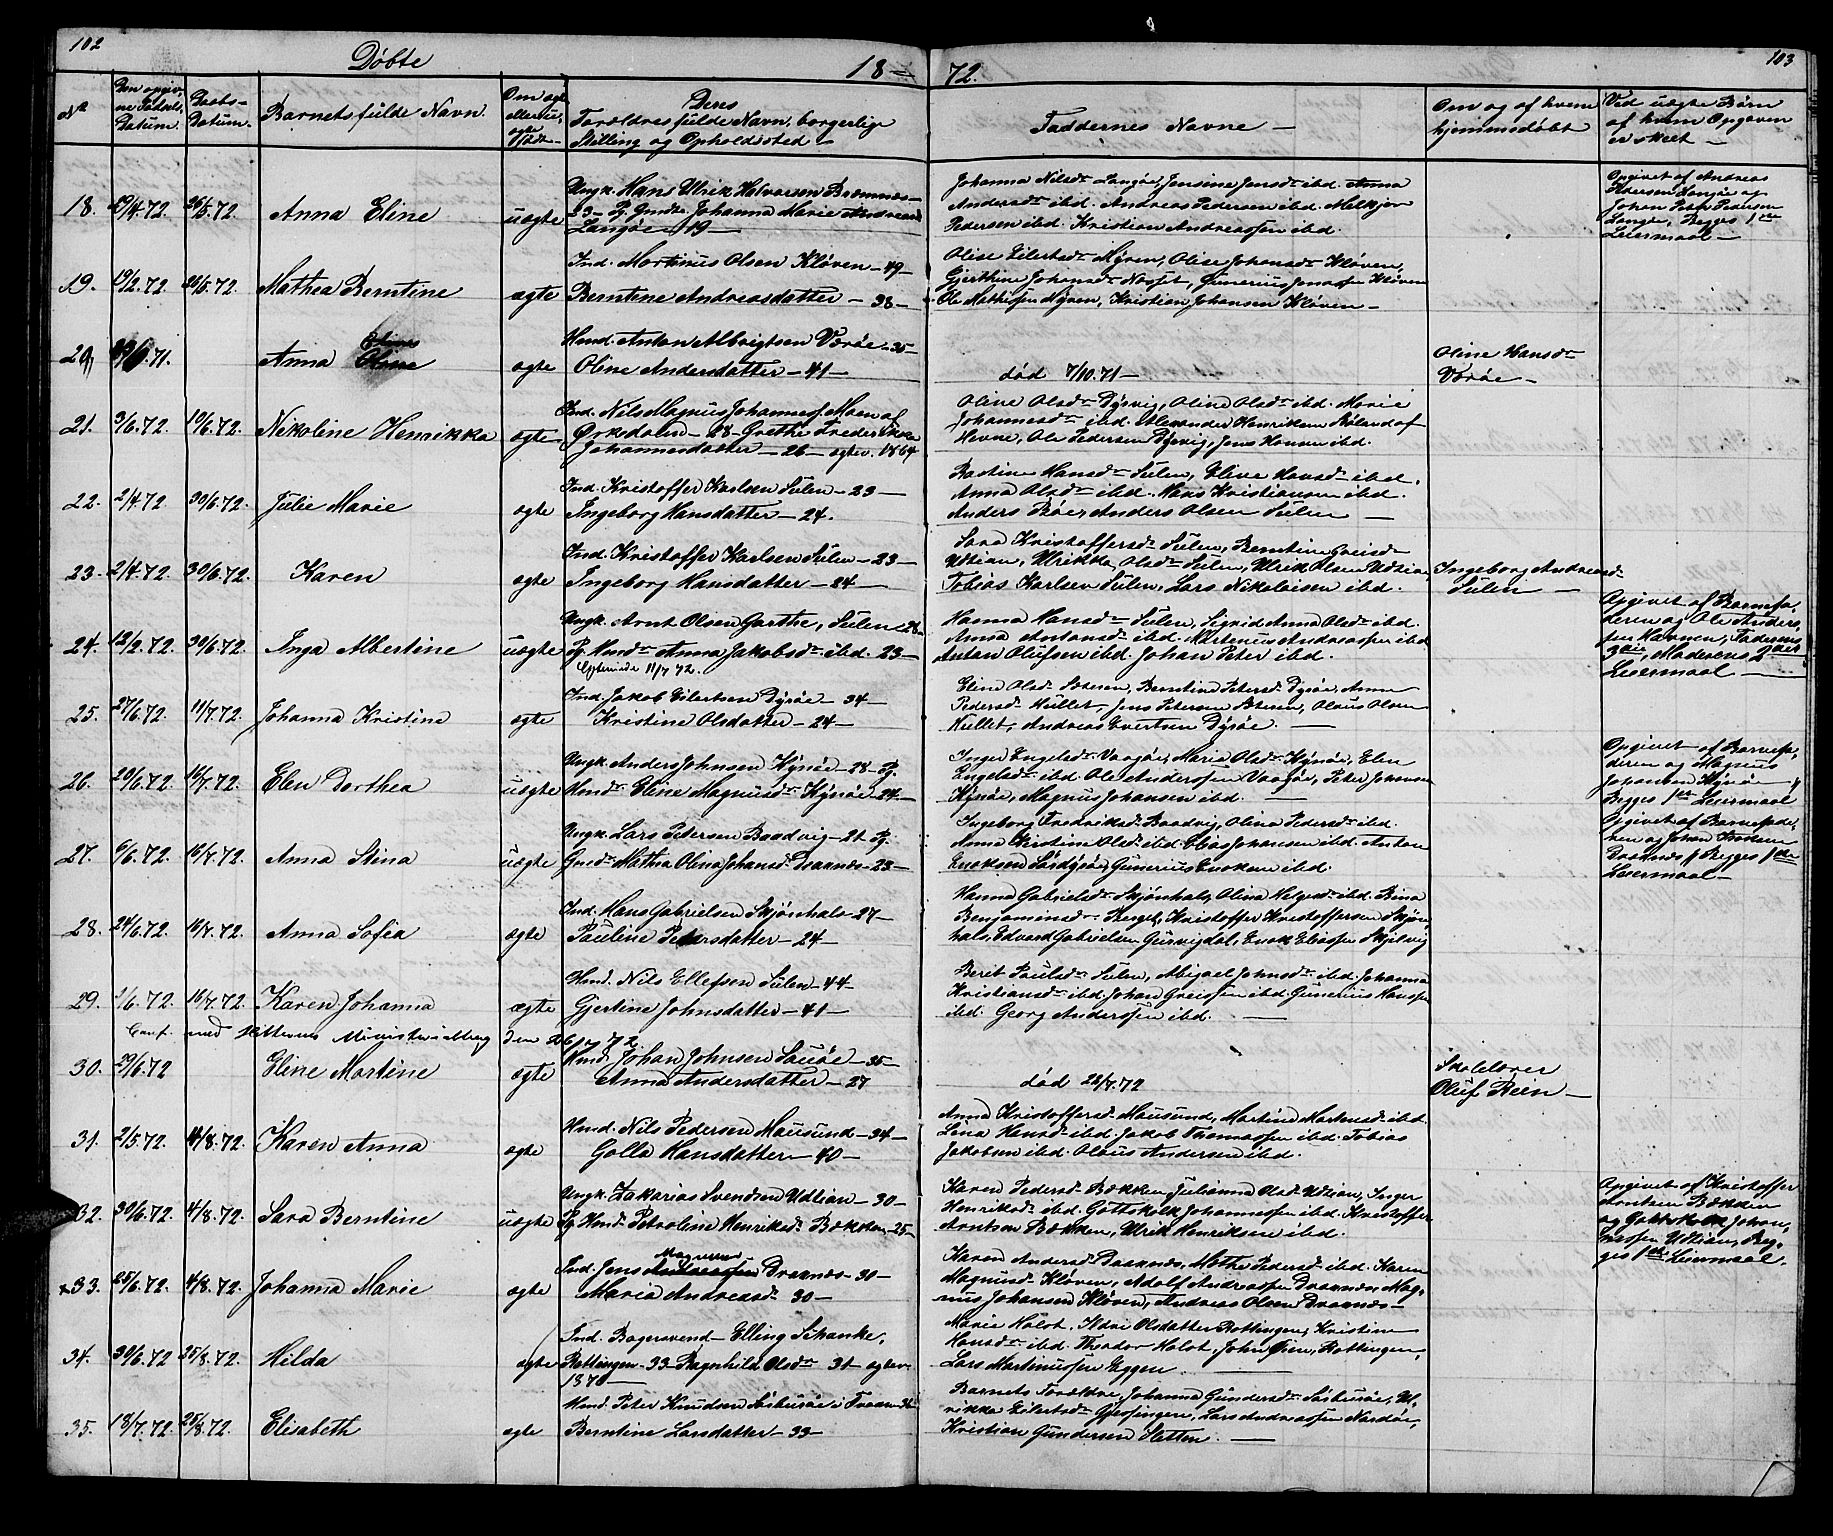 102
Döbte
18—
72.
103
No
Den opgiv-
ne Födsels
Datum.
Daabs-
Datum.
Barnets fulde Navn.
Om ægte
eller u-
ægte
født
Deres
Forældres fulde Navn, borgerlige
Stilling og Opholdssted —
Faddernes Navne —
Om og af hvem
hjemmedøbt
Ved uægte Børn
af hvem Opgaven
er skeet —
18. 19/4.72. 26/5.72. Anna Eline uægte
Ungk. Hans Ulrik Halvorsen
Pg. Johanna Marie Andreasd
Langøe 19—
Johanna Nilsdr Langøe, Jensine Jensdr ibd. Anna
Andersdr ibd. Andreas Pedersen ibd. Melkjor
Pedersen ibd. Kristian Andreassen ibd.
Opgivet af Andreas
Pedersen Langøe og
Johan Peter Pedersen
Langøe, Begges 1ste
Leiermaal —
19. 19/2.72. 26/5.72. Mathea Berntine ægte
Ind. Martinus Olsen Kløven — 49 —
Berntine Andreasdatter — 38 —
Olise Eilertsdr Myren, Olise Johansdr Kløven,
Gjertine Johansdr Næsset, Gunerius Jonassen Kløven
Ole Mathisen Myren, Kristian Johansen Kløven —
20. 71. Anna Oline ægte
Hmd. Anton Albrigtsen Værøe — 35 —
Oline Andersdatter — 41 —
død 7/10.71 —
Oline Hansdr
Værøe —
21. 3/6.72. 10/6.72. Nikoline Henrikka ægte
Ind. Nils Magnus Johannesf. Moen af
Ørkedalen — 28 Grethe Fredrikka
Johannesdatter — 26 — ægtev. 1864
Oline Olsdr Dyrvig, Oline Olsdr ibd. Marie
Johannesdr ibd. Alexander Henriksen Røland af
Hevne, Ole Pedersen Dyrvig, Jens Hansen ibd.
22. 2/4.72 30/6.72. Julie Marie ægte
Ind. Kristoffer Karlsen Sulen — 23 —
Ingeborg Hansdatter — 24.
Bastine Hansdr Sulen, Eline Hansdr ibd.
Anna Olsdr ibd. Hans Kristiansen ibd.
Anders Røe, Anders Olsen Sulen —
23. 2/4.72. 30/6.72. Karen ægte
Ind. Kristoffer Karlsen Sulen — 23 —
Ingeborg Hansdatter — 24 —
Sara Kristoffersdr Sulen, Berntine Greisdr
Udtian, Ulrikka Olsdr Sulen, Ulrik Olsen Udtian
Tobias Karlsen Sulen, Lars Nikolaisen ibd.
Ingeborg Andreasdr
Sulen —
24. 12/2.72. 30/6.72. Inga Albertine uægte
Ungk. Arnt Olsen Garthe, Sulen
Pg. Hmdr Anna Jakobsdr. ibd. 23 —
11/7 72.
Hanna Hansdr Sulen, Sigrid Anna Olsdr ibd.
Anna Antonsdr ibd. Martinus Andreassen ibd
Anton Olufsen ibd. Johan Peter ibd.
Opgivet af Barnefa-
deren og Ole Anders
sen Havnen, Faderens
3die, Moderens 2det
Leiermaal —
25. 27/6.72. 11/7.72. Johanna Kristine ægte
Ind. Jakob Eilertsen Dyrøe — 34 —
Kristine Olsdatter — 24 —
Eline Olsdr Sætersen, Berntine Petersdr Dyrøe, Anne
Pedersdr Hullet, Jens Petersen Sætersen, Olaus Olsen
Hullet, Andreas Evertsen Dyrøe. —
26. 20/6.72. 16/7.72. Elen Dorthea uægte
Ungk. Anders Johnsen Kynøe — 28 — Pg.
Hmdr Eline Magnusdr Kynøe 24 —
Inger Engelsdr Vaagøe, Maria Olsdr Kynøe, Elen
Engelsdr ibd. Ole Anderssen Vaagøe, Peter Johansen
Kynøe, Magnus Johansen ibd. —
Opgivet af Barnefa-
deren og Magnus
Johansen Kynøe
Begges 1ste Leiermaal
27. 6/6.72. 16/7.72. Anna Stina uægte
Ungk. Lars Petersen Baadvig — 21 Pg.
Gmdr Mathea Olina Johansdr. Daanæs — 23 —
Ingeborg Fredriksdr Baadvig, Olina Pedersdr ibd.
Anna Kristine Olsdr ibd. Elias Johansen ibd. Anton
Enoksen Sørdyrøe, Gunerius Enoksen ibd.
Opgivet af Barnefade-
ren og Johan
Begges 1ste
Leiermaal —
28. 24/6.72. 16/7.72. Anna Sofia ægte
Ind. Hans Gabrielsen Skjønhals — 27 —
Pauline Petersdatter — 24 —
Hanna Gabrielsdr Skjønhals, Olina Helgesdr ibd. Bina
Benjaminsdr Berget, Kristoffer Kristoffersen Skjøn
hals, Edvard Gabrielsen Gurvigdal, Enok Eliassen Skjelvig
29. 1/6.72. 16/7.72. Karen Johanna ægte
Hmd. Nils Ellefsen Sulen — 44 —
Gjertine Johnsdatter — 41 —
Berit Paulsdr Sulen, Abigael Johnsdr ibd. Johanna
Kristiansdr ibd. Johan Greissen ibd. Gunerius Hanssen
ibd. Georg Anderssen ibd. —
Conf. med Hitterens Ministerialbog den 26/7 72.
30. 29/6.72 Eline Martine ægte
Hmd. Johan Johnsen Sauøe — 35 —
Anna Andersdatter — 27
død 22/7.72
Skolelærer
Oluf Rein —
31. 2/5.72. 4/8.72. Karen Anna ægte
Hmd. Nils Pedersen Mausund — 34 —
Golla Hansdatter — 40 —
Anna Kristoffersdr Mausund, Martina Martensdr ibd.
Lina Hansdr ibd. Jakob Thomassen ibd. Tobias
Jakobsen ibd. Olaus Andersen ibd.
32. 30/6.72. 4/8.72. Sara Berntine uægte
Ungk. Zakarias Svendsen Udtian — 30 —
Pg. Hmdr Petroline Henriksdr Bækken — 25 —
Karen Pedersdr Bækken, Julianna Olsdr Udtian, Inger
Henriksdr ibd. Gottskalk Johannessen ibd. Kristoffer
Arntsen Bækken, Ulrik Henriksen ibd.
Opgivet af Kristoffer
Arntsen Bækken
og Gottskalk Johan-
nessen Udtian, Beg-
ges 1ste Leiermaal.
x33. 25/6.72. 4/8.72. Johanna Marie ægte
Magnussen
Ind. Jens Andreassen Draanæs — 30 —
Maria Andreasdr 30 —
Karen Andersdr Daanæs, Mathe Pedersdr ibd. Karen
Magnusdr Kløven, Adolf Andreassen Draanæs, Mag-
nus Johansen Kløven, Andreas Olsen Draanæs —
34. 30/6.72 25/8.72. Hilda ægte
Ind. Bagersvend — Elling Schanke,
Bottingen — 33 — Ragnhild Olsdr 31 — ægtev.
1870 —
Marie Holst, Kari Olsdatter Bottingen, Kristine
Hansdr ibd. Theodor Holst, John Øien, Bottingen,
Lars Martinussen Eggen —
35. 18/7.72. 25/8.72. Elisabeth ægte
Hmd. Peter Knudsen Sæbuøe i
Berntine Larsdatter — 33 —
Barnets Forældre, Johanna Gundersdr Sæbuøe, Ul-
rikka Eilertsdr Gjessingen, Lars Andreassen Nordøe,
Kristian Gundersen Sletten. —